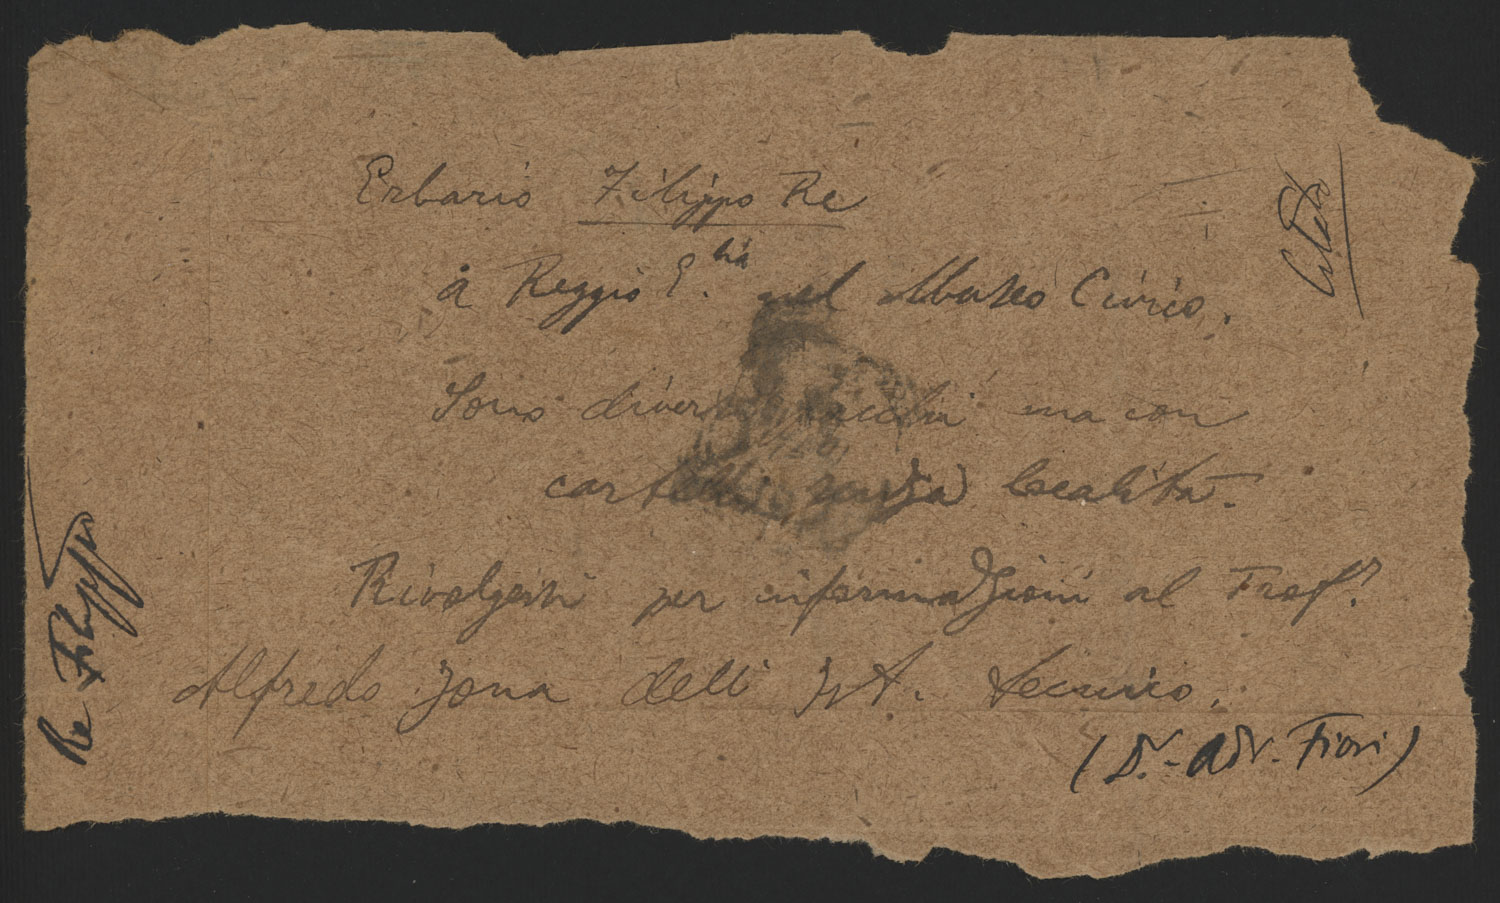 Erbario Filippo Re
a Reggio E.lia nel Museo Civico.
Sono diversi pacchi ma con
cartellini senza località.
Rivolgersi per informazioni al Prof.
Alfredo Jona dell'Ist. tecnico.
(Dr. Adr. Fiori)
Re Filippo